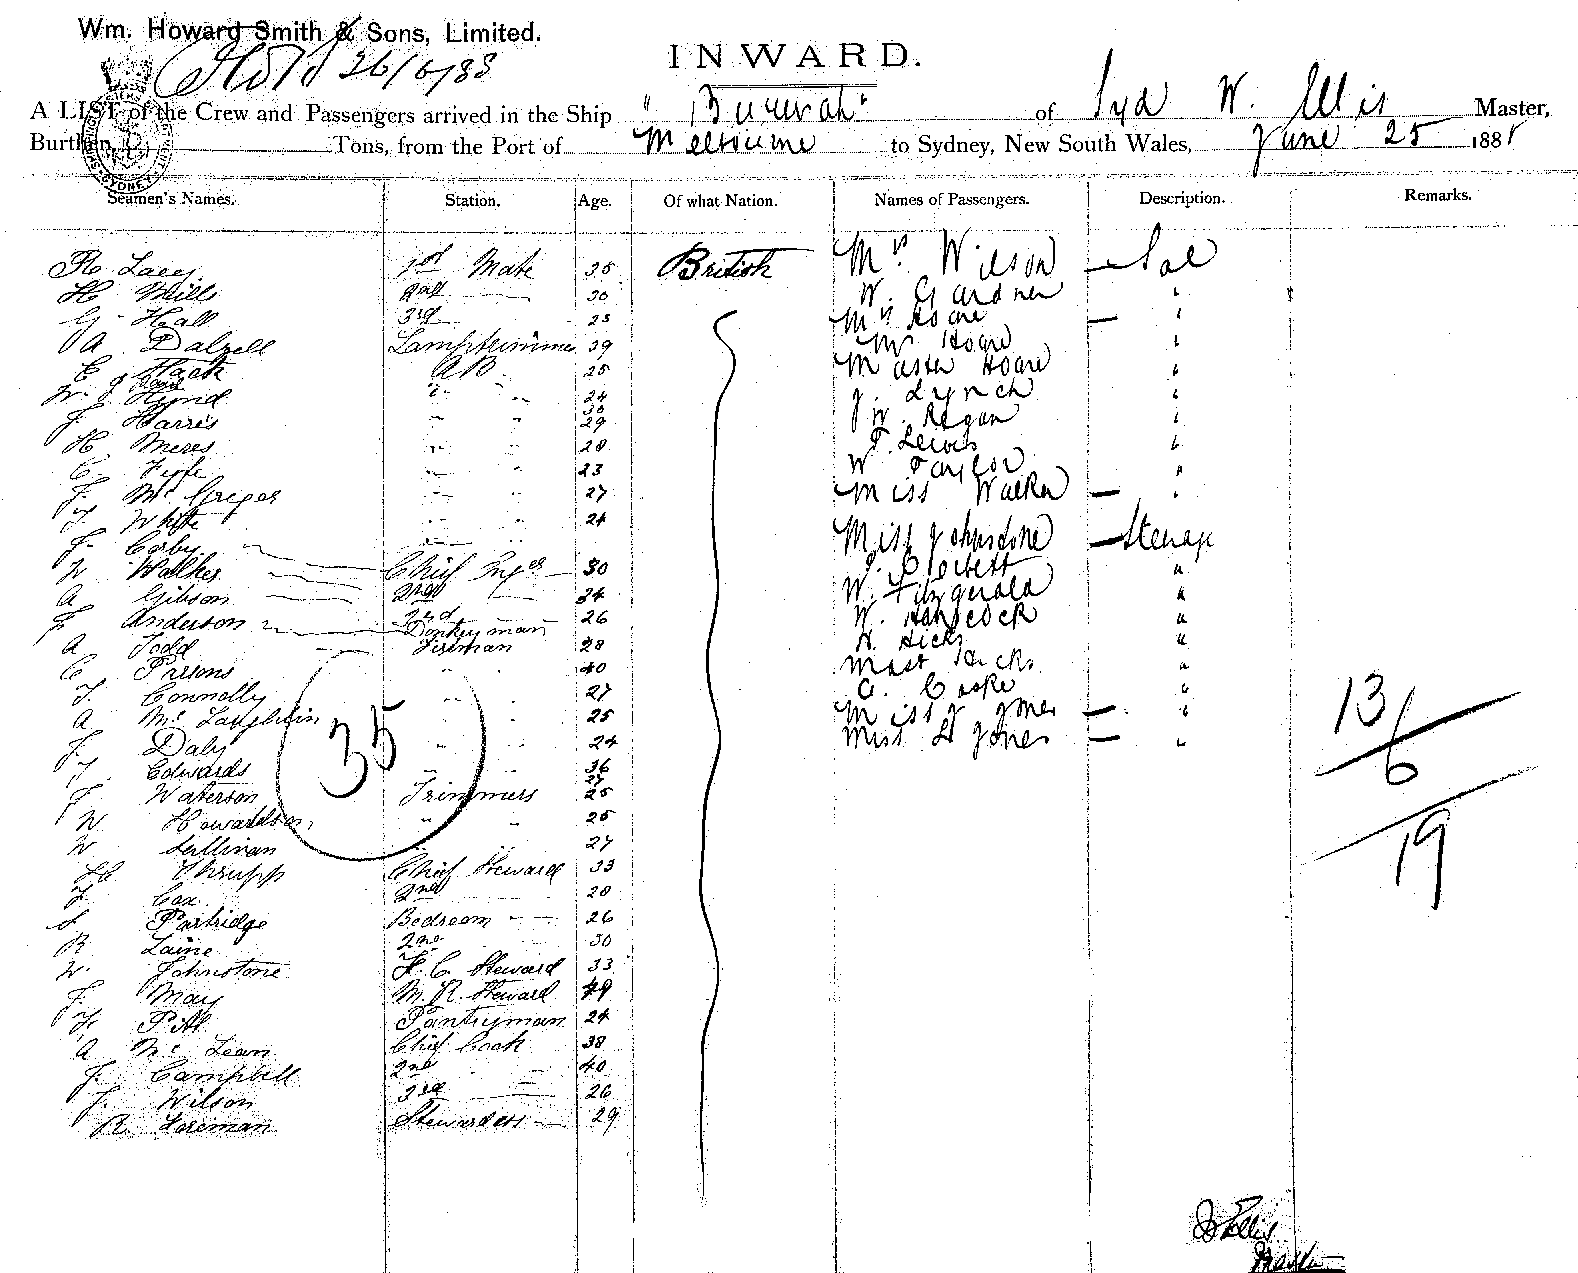 Wm. Howard Smith & Sons, Limited.
26/6/88
INWARD.
A LIST of the Crew and Passengers arrived in the Ship "Burwah" of Syd W. Ellis Master,
Burthen Tons, from the Port of Melbourne to Sydney, New South Wales, June 25 1888
Seamen's Names. Station. Age. Of what Nation. Names of Passengers. Description. Remarks.
R Lacy 1st Mate 35 British Mrs Wilson — Sal
H Mills 2nd — 30 W. Gardner "
G Hall 3rd 23 Mrs Hoare — "
A Dalzell Lamptrimmer 39 Mr Hoare "
C Hack AB 25 Master Hoare "
W. Hynd " " 24 J. Lynch "
36
J. Harris " " 29 W. Regan "
H Meres " " 28 T Lewis "
C. Fyfe " " 23 W Taylor "
J. McGregor " " 27 Miss Walker — "
J White " " 24
J. Corby " " Miss Johnstone — Steerage
W Walker Chief Engr 30 J. Corbett
A Gibson 2nd 34 W. Fitzgerald "
J Anderson 3rd 26 W. Hancock "
Donkeyman
A Todd Fireman 28 H. Hicks "
C. Parsons " " 40 Mast Hicks "
J. Connolly " " 27 C. Cooke "
A McLaughlin " " 25 Miss J Jones — "
J. Daly " " 24 Miss H Jones — "
J Edwards " " 36
27
J Waterson Trimmers 25
W Howardson " " 25
W Sullivan " " 27
35
13
6
19
H Thrupp Chief Steward 33
J Cox 2nd 20
S Partridge Bedroom — 26
R Laine 2nd 30
W. Johnstone F. C. Steward 33
J. May M. R. Steward 49
J. Pitt Pantryman 24
A McLean Chief Cook 38
J. Campbell 2nd 40
J. Wilson 3rd 26
R Foreman Stewardess — 29
Ellis
Master